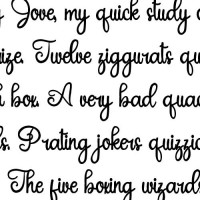 Jove, my quick study
ize. Twelve ziggurats qu
box. A very bad quac
s. Prating jokers quizzic
The five boxing wizards